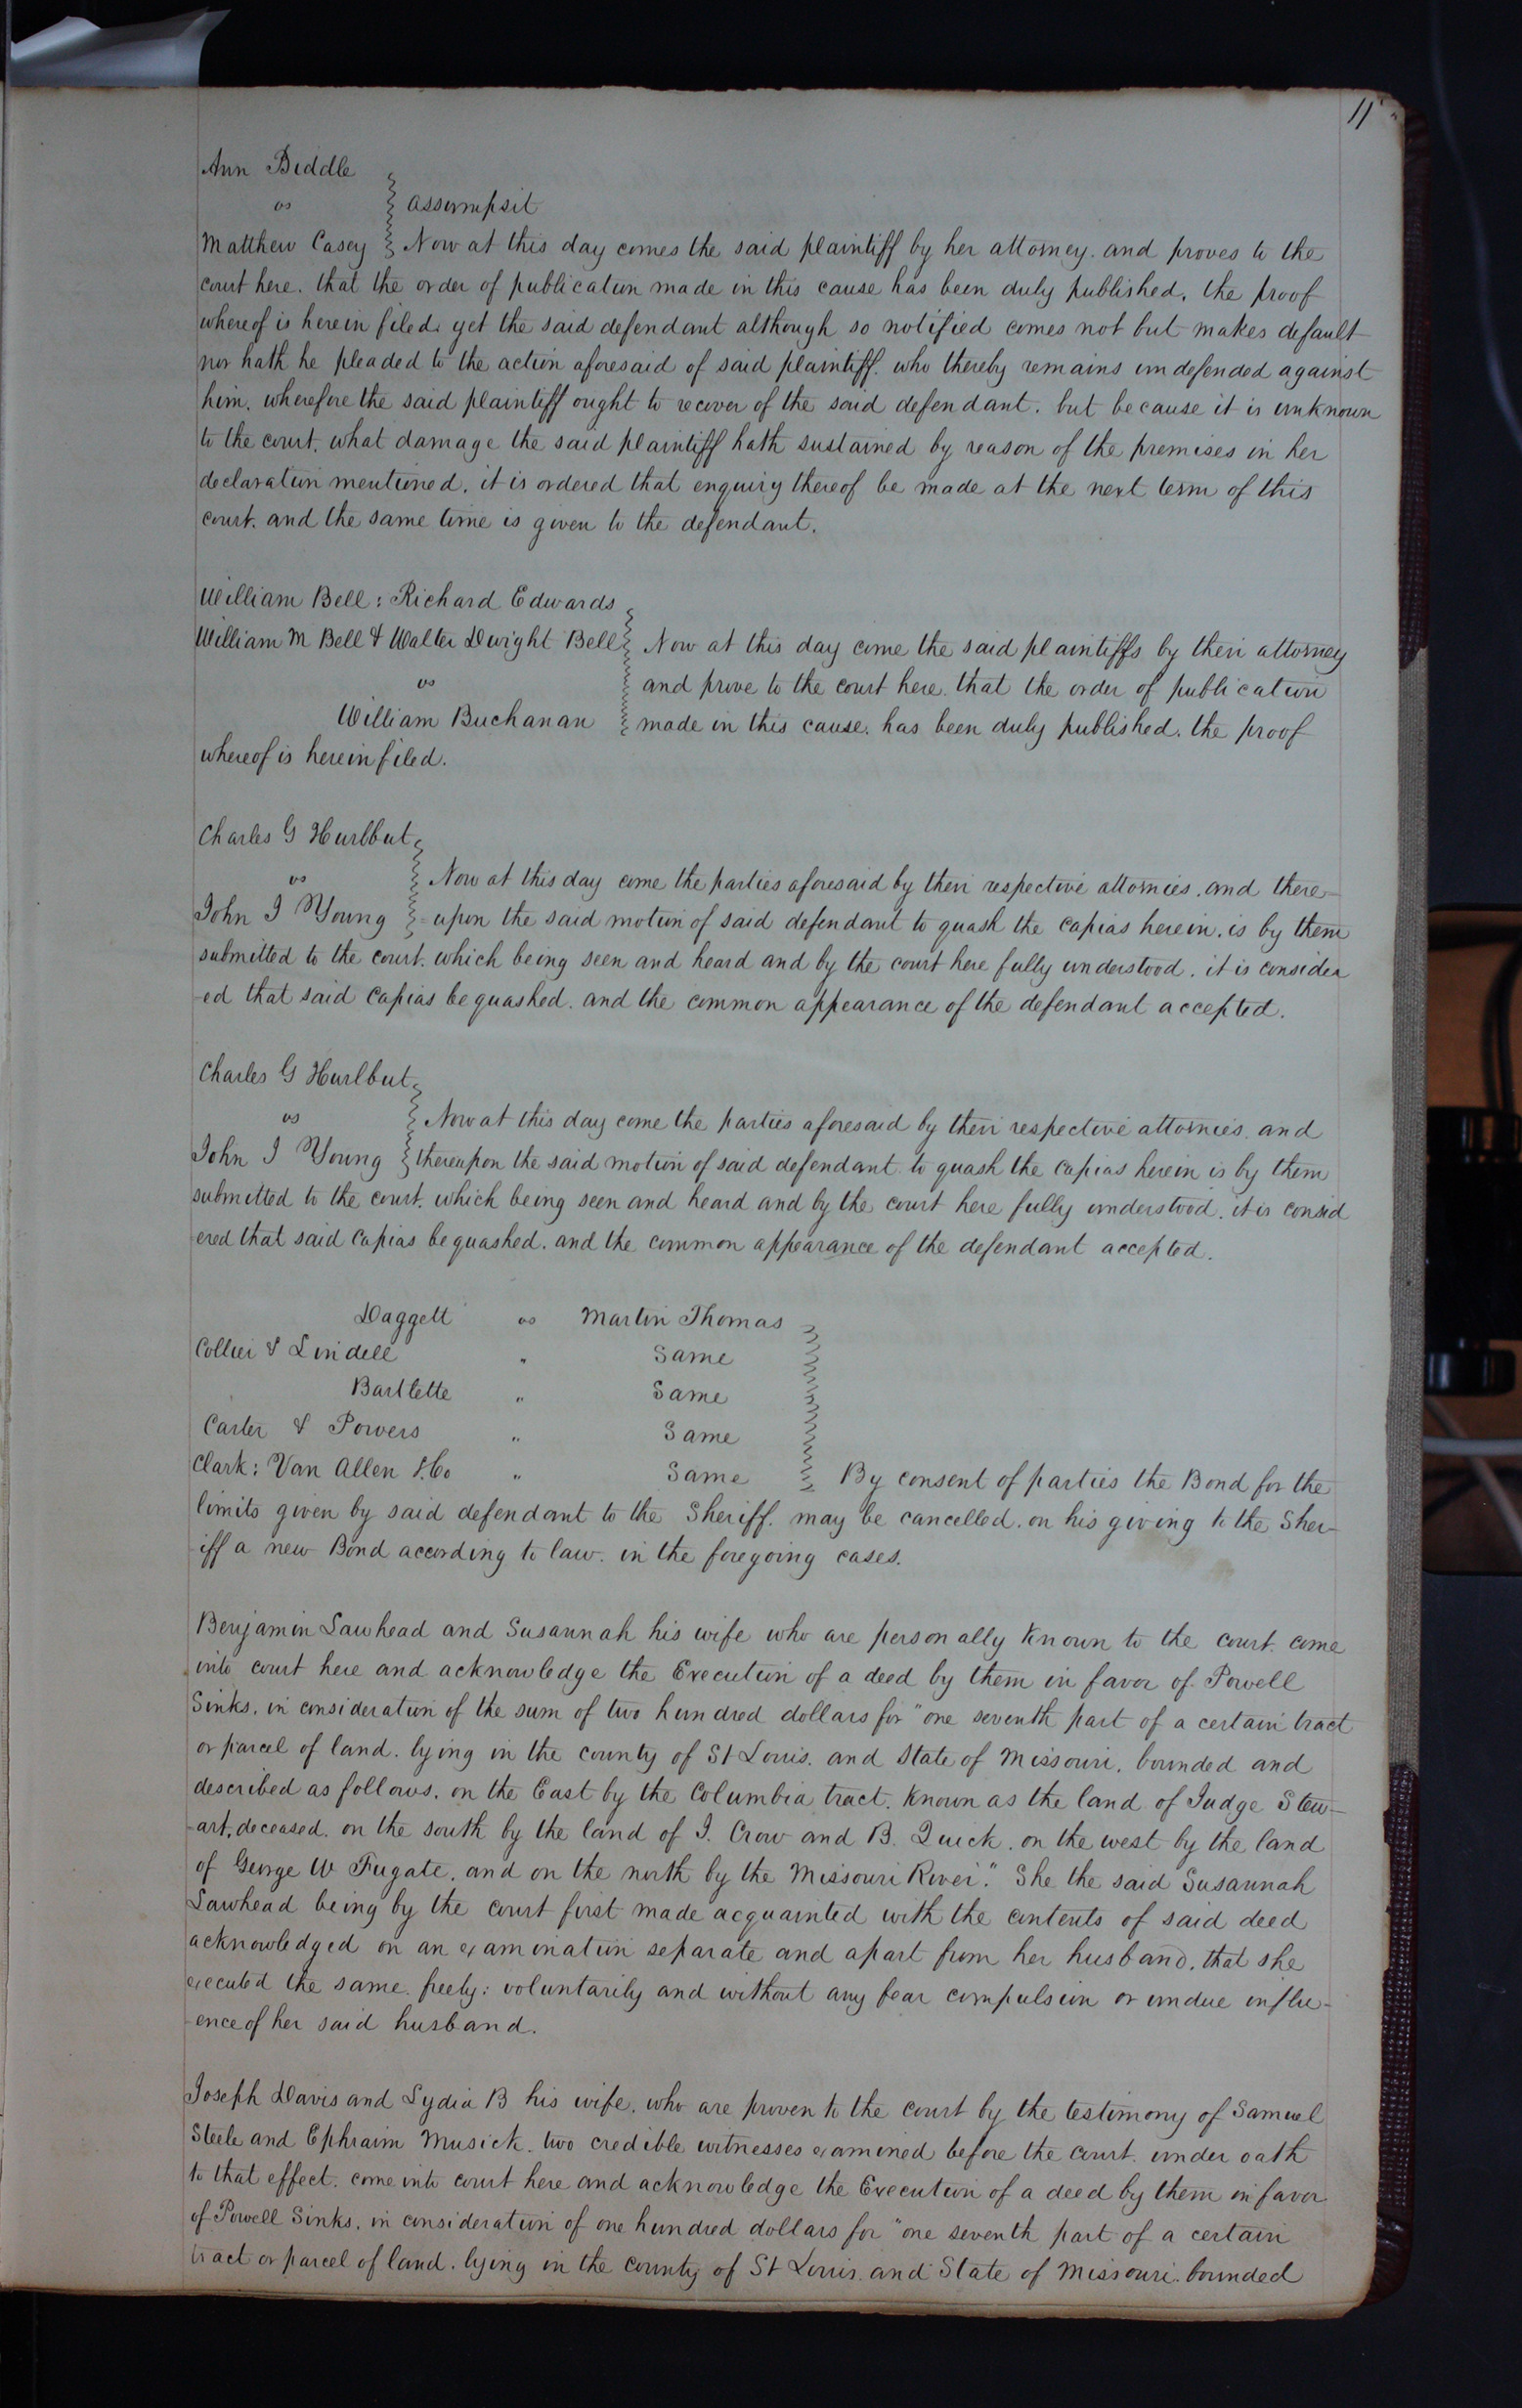 11
Ann Biddle
vs
assumpsit
Matthew Casey Now at this day comes the said plaintiff by her attorney. and proves to the
court here. that the order of publication made in this cause has been duly published, the proof
whereof is herein filed. yet the said defendant although so notified comes not but makes default
nor hath he pleaded to the action aforesaid of said plaintiff. who thereby remains undefended against
him. wherefore the said plaintiff ought to recover of the said defendant. but because it is unknown
to the court. what damage the said plaintiff hath sustained by reason of the premises in her
declaration mentioned. it is ordered that enquiry thereof be made at the next term of this
court. and the same time is given to the defendant.
William Bell: Richard Edwards
William M Bell & Walter Dwight Bell Now at this day come the said plaintiffs by their attorney
vs and prove to the court here. that the order of publication
William Buchanan made in this cause. has been duly published. the proof
whereof is herein filed.
Charles G Hurlbut
vs Now at this day come the parties aforesaid by their respective attornies. and there-
John J Young upon the said motion of said defendant to quash the capias herein. is by them
submitted to the court. which being seen and heard and by the court here fully understood. it is consider
-ed that said capias be quashed. and the common appearance of the defendant accepted.
Charles G Hurlbut
vs Now at this day come the parties aforesaid by their respective attornies. and
John J Young thereupon the said motion of said defendant to quash the capias herein is by them
submitted to the court. which being seen and heard and by the court here fully understood. it is consid
ered that said capias be quashed. and the common appearance of the defendant accepted.
Daggett vs Martin Thomas
Collier & Lindell " Same
Bartlette " Same
Carter & Powers " Same
Clark: Van Allen & Co " Same By consent of parties the Bond for the
limits given by said defendant to the Sheriff. may be cancelled. on his giving to the Sher-
-iff a new Bond according to law. in the foregoing cases.
Benjamin Lawhead and Susannah his wife who are personally known to the court. come
into court here and acknowledge the Execution of a deed by them in favor of Powell
Sinks. in consideration of the sum of two hundred dollars for "one seventh part of a certain tract
or parcel of land. lying in the county of St Louis. and State of Missouri. bounded and
described as follows. on the East by the Columbia tract. known as the land of Judge Stew-
-art. deceased. on the south by the land of J. Crow and B. Quick. on the west by the land
of George W Fugate. and on the north by the Missouri River." She the said Susannah
Lawhead being by the court first made acquainted with the contents of said deed
acknowledged on an examination separate and apart from her husband. that she
executed the same. freely: voluntarily and without any fear compulsion or undue influ-
-ence of her said husband.
Joseph Davis and Lydia B his wife. who are proven to the court by the testimony of Samuel
Steele and Ephraim Musick. two credible witnesses examined before the court. under oath
to that effect. come into court here and acknowledge the Execution of a deed by them in favor
of Powell Sinks. in consideration of one hundred dollars for "one seventh part of a certain
tract or parcel of land. lying in the county of St Louis. and State of Missouri. bounded